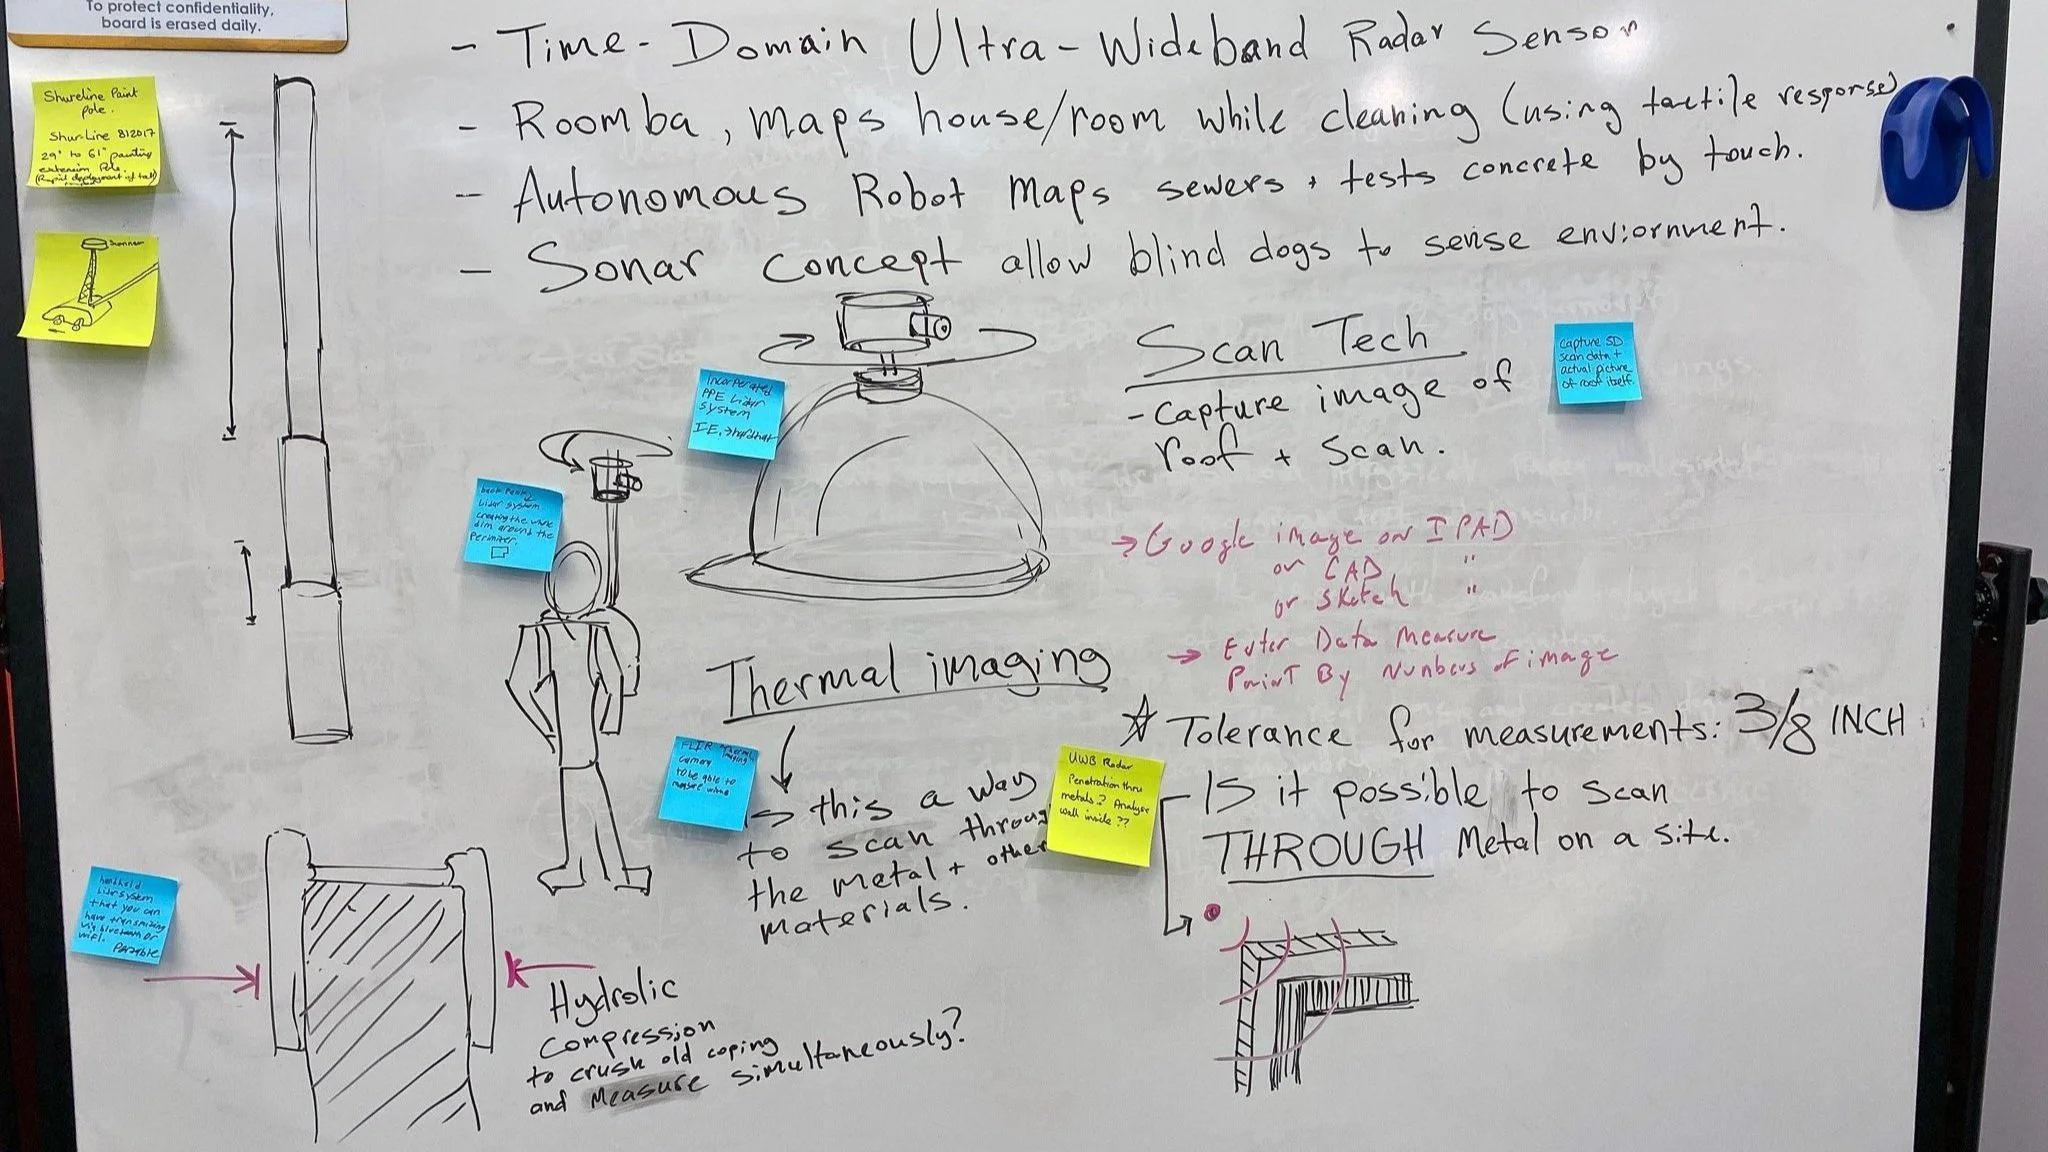 To protect confidentiality,
board is erased daily.
- Time-Domain Ultra-Wideband Radar Sensor
- Roomba, maps house/room while cleaning (using tactile response)
- Autonomous Robot maps sewers + tests concrete by touch.
- Sonar concept allow blind dogs to sense enviornment.
Shureline Paint
Pole.
Shur-Line 812017
29" to 61" painting
extension Pole
(Rapid deployment of tool)
Scanner
Incorporated
PPE Lidar
system
I.E. → hardhat
back Pack
Lidar system
creating the whole
dim around the
Perimiter.
Scan Tech
- capture image of
roof + scan.
Capture 3D
scan data +
actual picture
of roof itself.
→ Google image on IPAD
on CAD "
or Sketch "
→ Enter Data Measure
Paint By Numbers of image
Thermal imaging
FLIR "Thermal
imaging"
Camera
to be able to
measure
→ this a way
to scan throug
the metal + other
materials.
☆ Tolerance for measurements: 3/8 INCH
UWB Radar
Penetration thru
metals? Analyse
wall inside??
- Is it possible to scan
THROUGH Metal on a site.
handheld
Lidar system
that you can
have transmitting
via bluetooth or
wifi.
Hydrolic
compression
to crush old coping
and measure simultaneously?